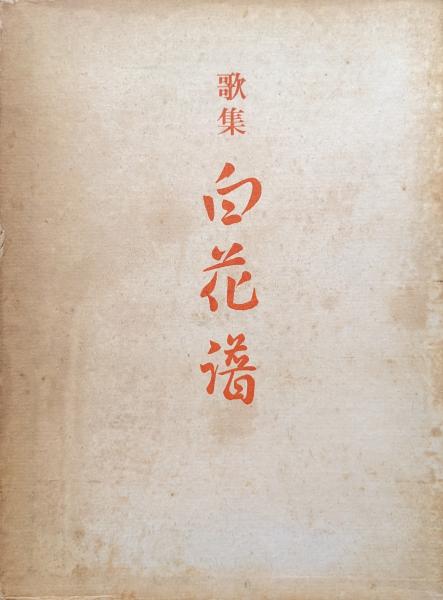 歌集
白花譜